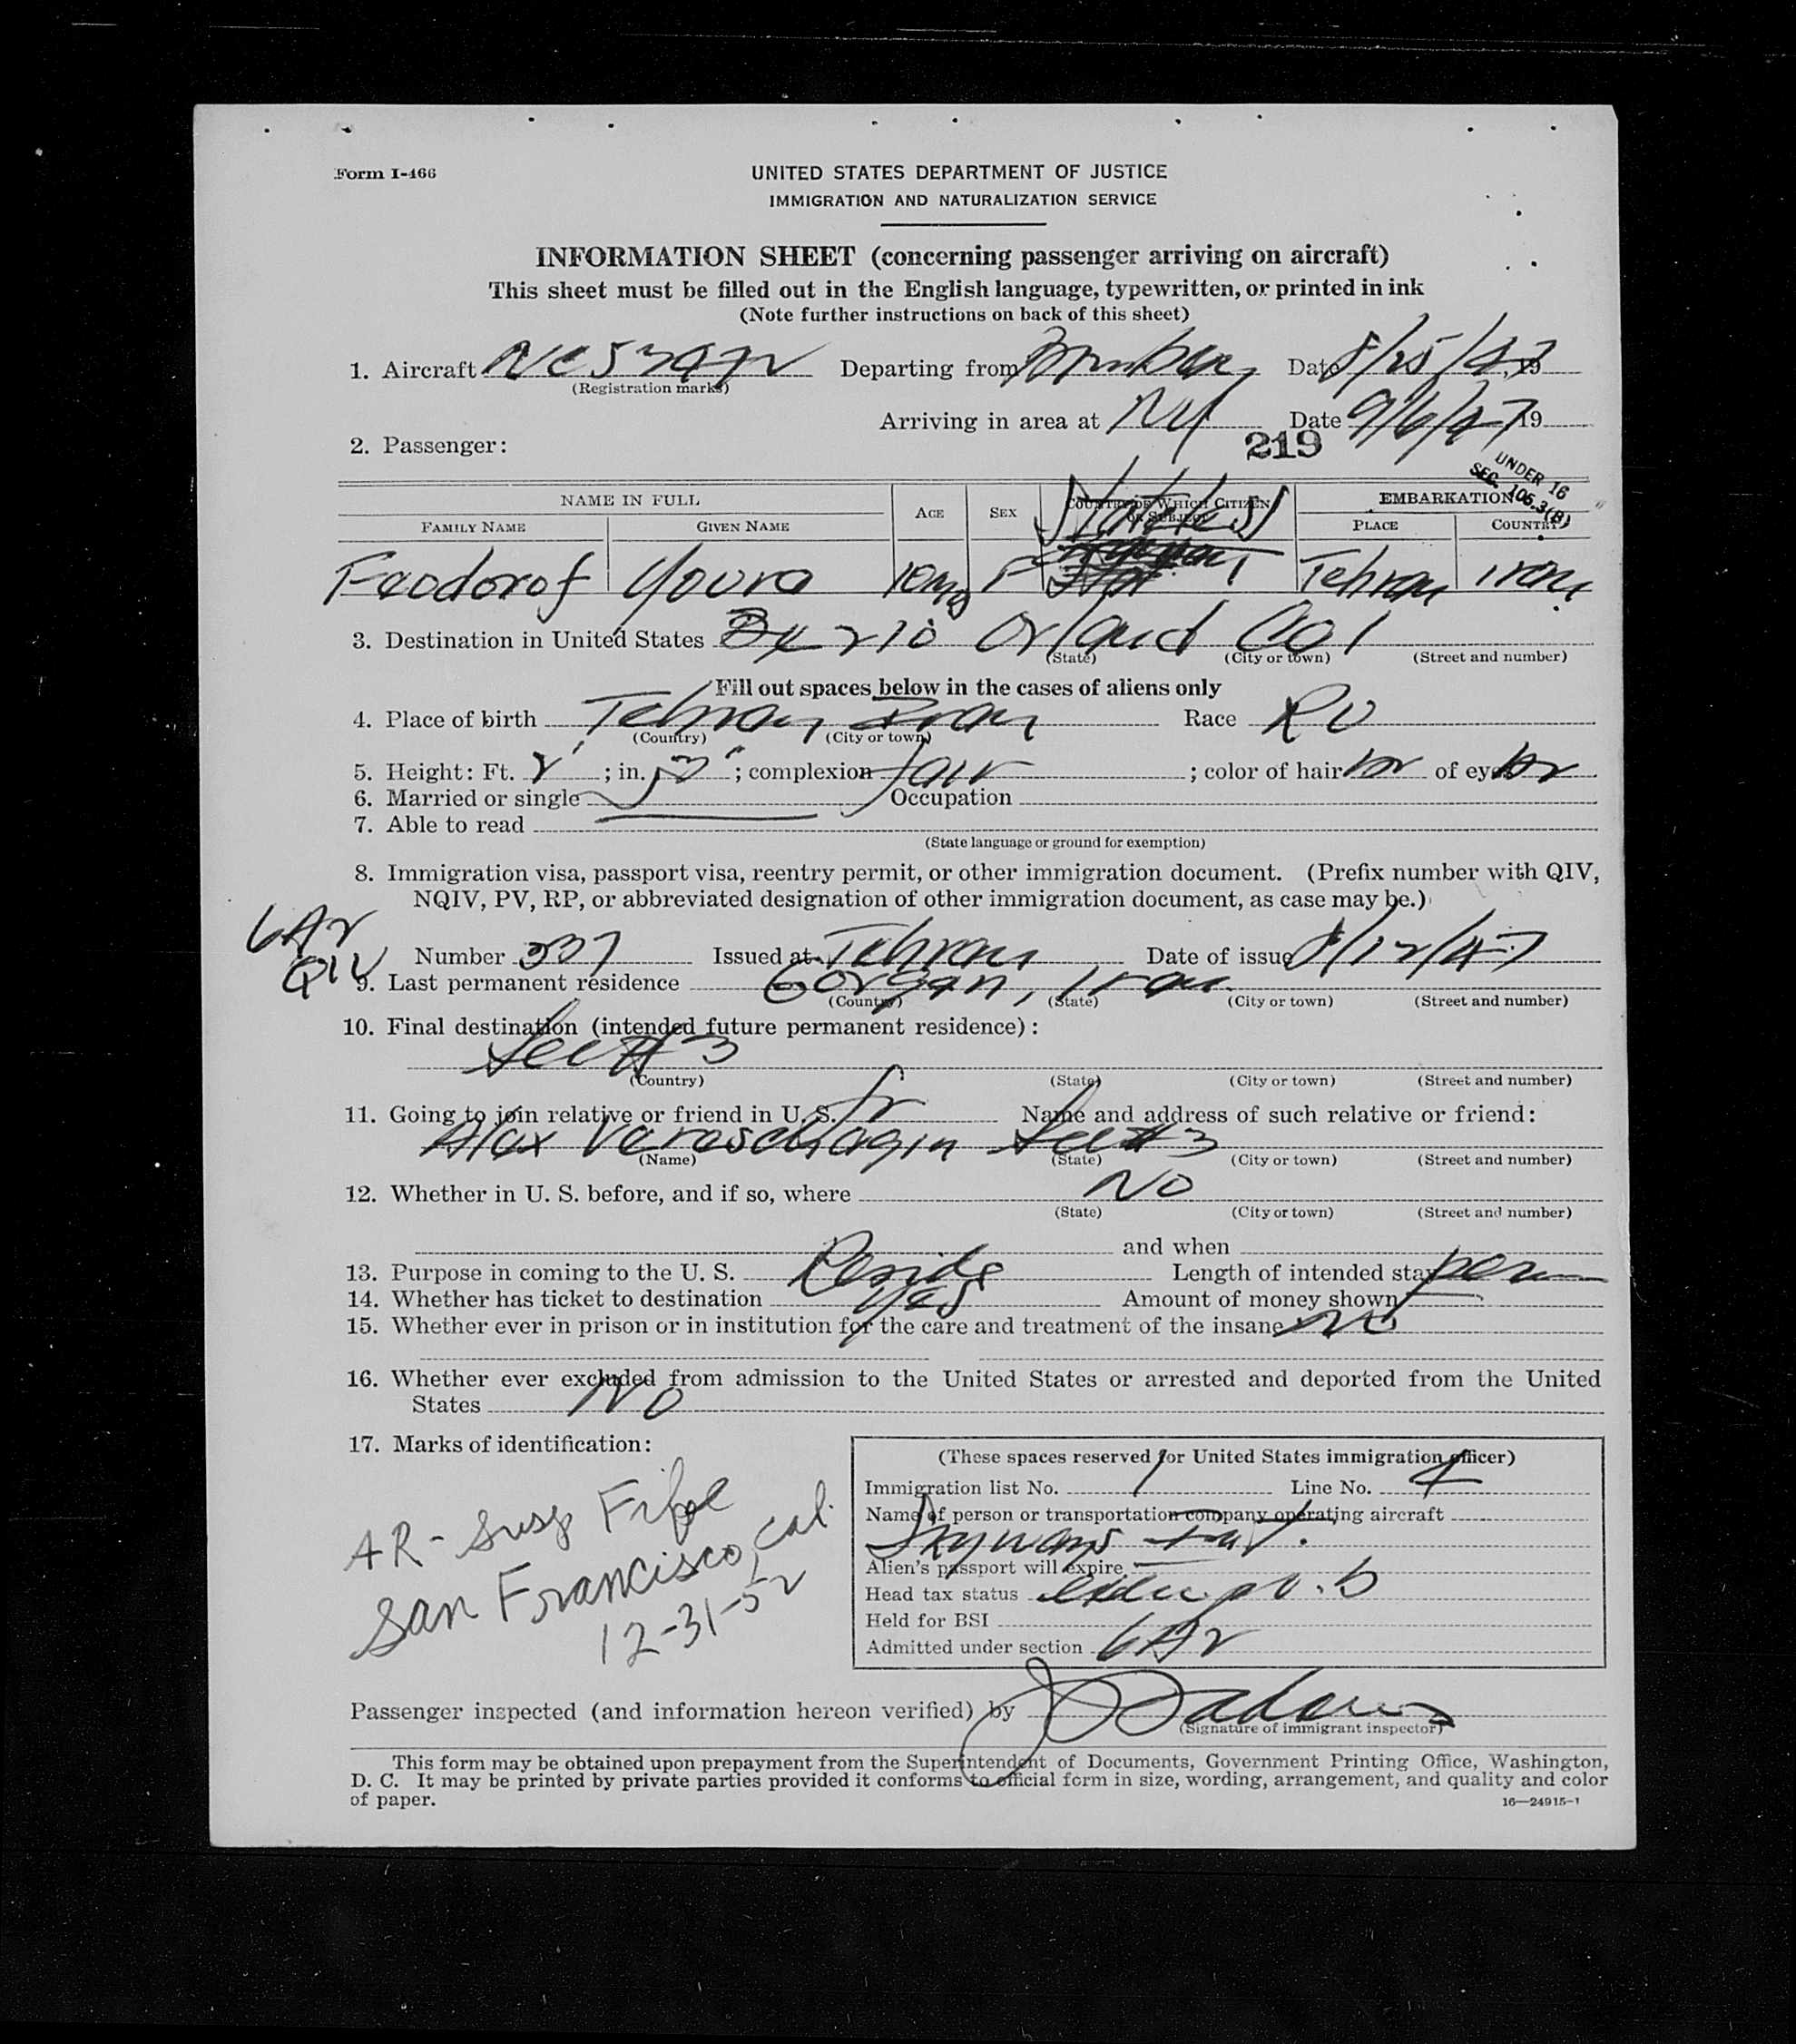 Form I-466
UNITED STATES DEPARTMENT OF JUSTICE
IMMIGRATION AND NATURALIZATION SERVICE
INFORMATION SHEET (concerning passenger arriving on aircraft)
This sheet must be filled out in the English language, typewritten, or printed in ink
(Note further instructions on back of this sheet)
1. Aircraft Departing from Date 8/25/47 19
(Registration marks)
Arriving in area at NY Date 9/6/47 19
2. Passenger: 219
UNDER 16
SEC. 105.3(B)
NAME IN FULL AGE SEX COUNTRY OF WHICH CITIZEN OR SUBJECT EMBARKATION
FAMILY NAME GIVEN NAME Stateless PLACE COUNTRY
Feodorof Youra 10mo F Tehran Iran
3. Destination in United States Bx 210 Orland Cal
(State) (City or town) (Street and number)
Fill out spaces below in the cases of aliens only
4. Place of birth Tehran Iran Race RU
(Country) (City or town)
5. Height: Ft. 2' ; in. "; complexion fair ; color of hair br of eyes br
6. Married or single S Occupation
7. Able to read
(State language or ground for exemption)
8. Immigration visa, passport visa, reentry permit, or other immigration document. (Prefix number with QIV,
NQIV, PV, RP, or abbreviated designation of other immigration document, as case may be.)
6A2
QIV Number 337 Issued at Tehran Date of issue 8/12/47
9. Last permanent residence Gorgan, Iran
(Country) (State) (City or town) (Street and number)
10. Final destination (intended future permanent residence):
See #3
(Country) (State) (City or town) (Street and number)
11. Going to join relative or friend in U. S. fr Name and address of such relative or friend:
Alax Veraschagin See #3
(Name) (State) (City or town) (Street and number)
12. Whether in U. S. before, and if so, where NO
(State) (City or town) (Street and number)
and when
13. Purpose in coming to the U. S. Reside Length of intended stay perm
14. Whether has ticket to destination yes Amount of money shown
15. Whether ever in prison or in institution for the care and treatment of the insane no
16. Whether ever excluded from admission to the United States or arrested and deported from the United
States NO
17. Marks of identification:
AR- Susp File
San Francisco, Cal.
12-31-52
(These spaces reserved for United States immigration officer)
Immigration list No. 1 Line No. 4
Name of person or transportation company operating aircraft
Skyways Int.
Alien's passport will expire
Head tax status
Held for BSI
Admitted under section 6A2
Passenger inspected (and information hereon verified) by
(Signature of immigrant inspector)
This form may be obtained upon prepayment from the Superintendent of Documents, Government Printing Office, Washington,
D. C. It may be printed by private parties provided it conforms to official form in size, wording, arrangement, and quality and color
of paper.
16—24915-1